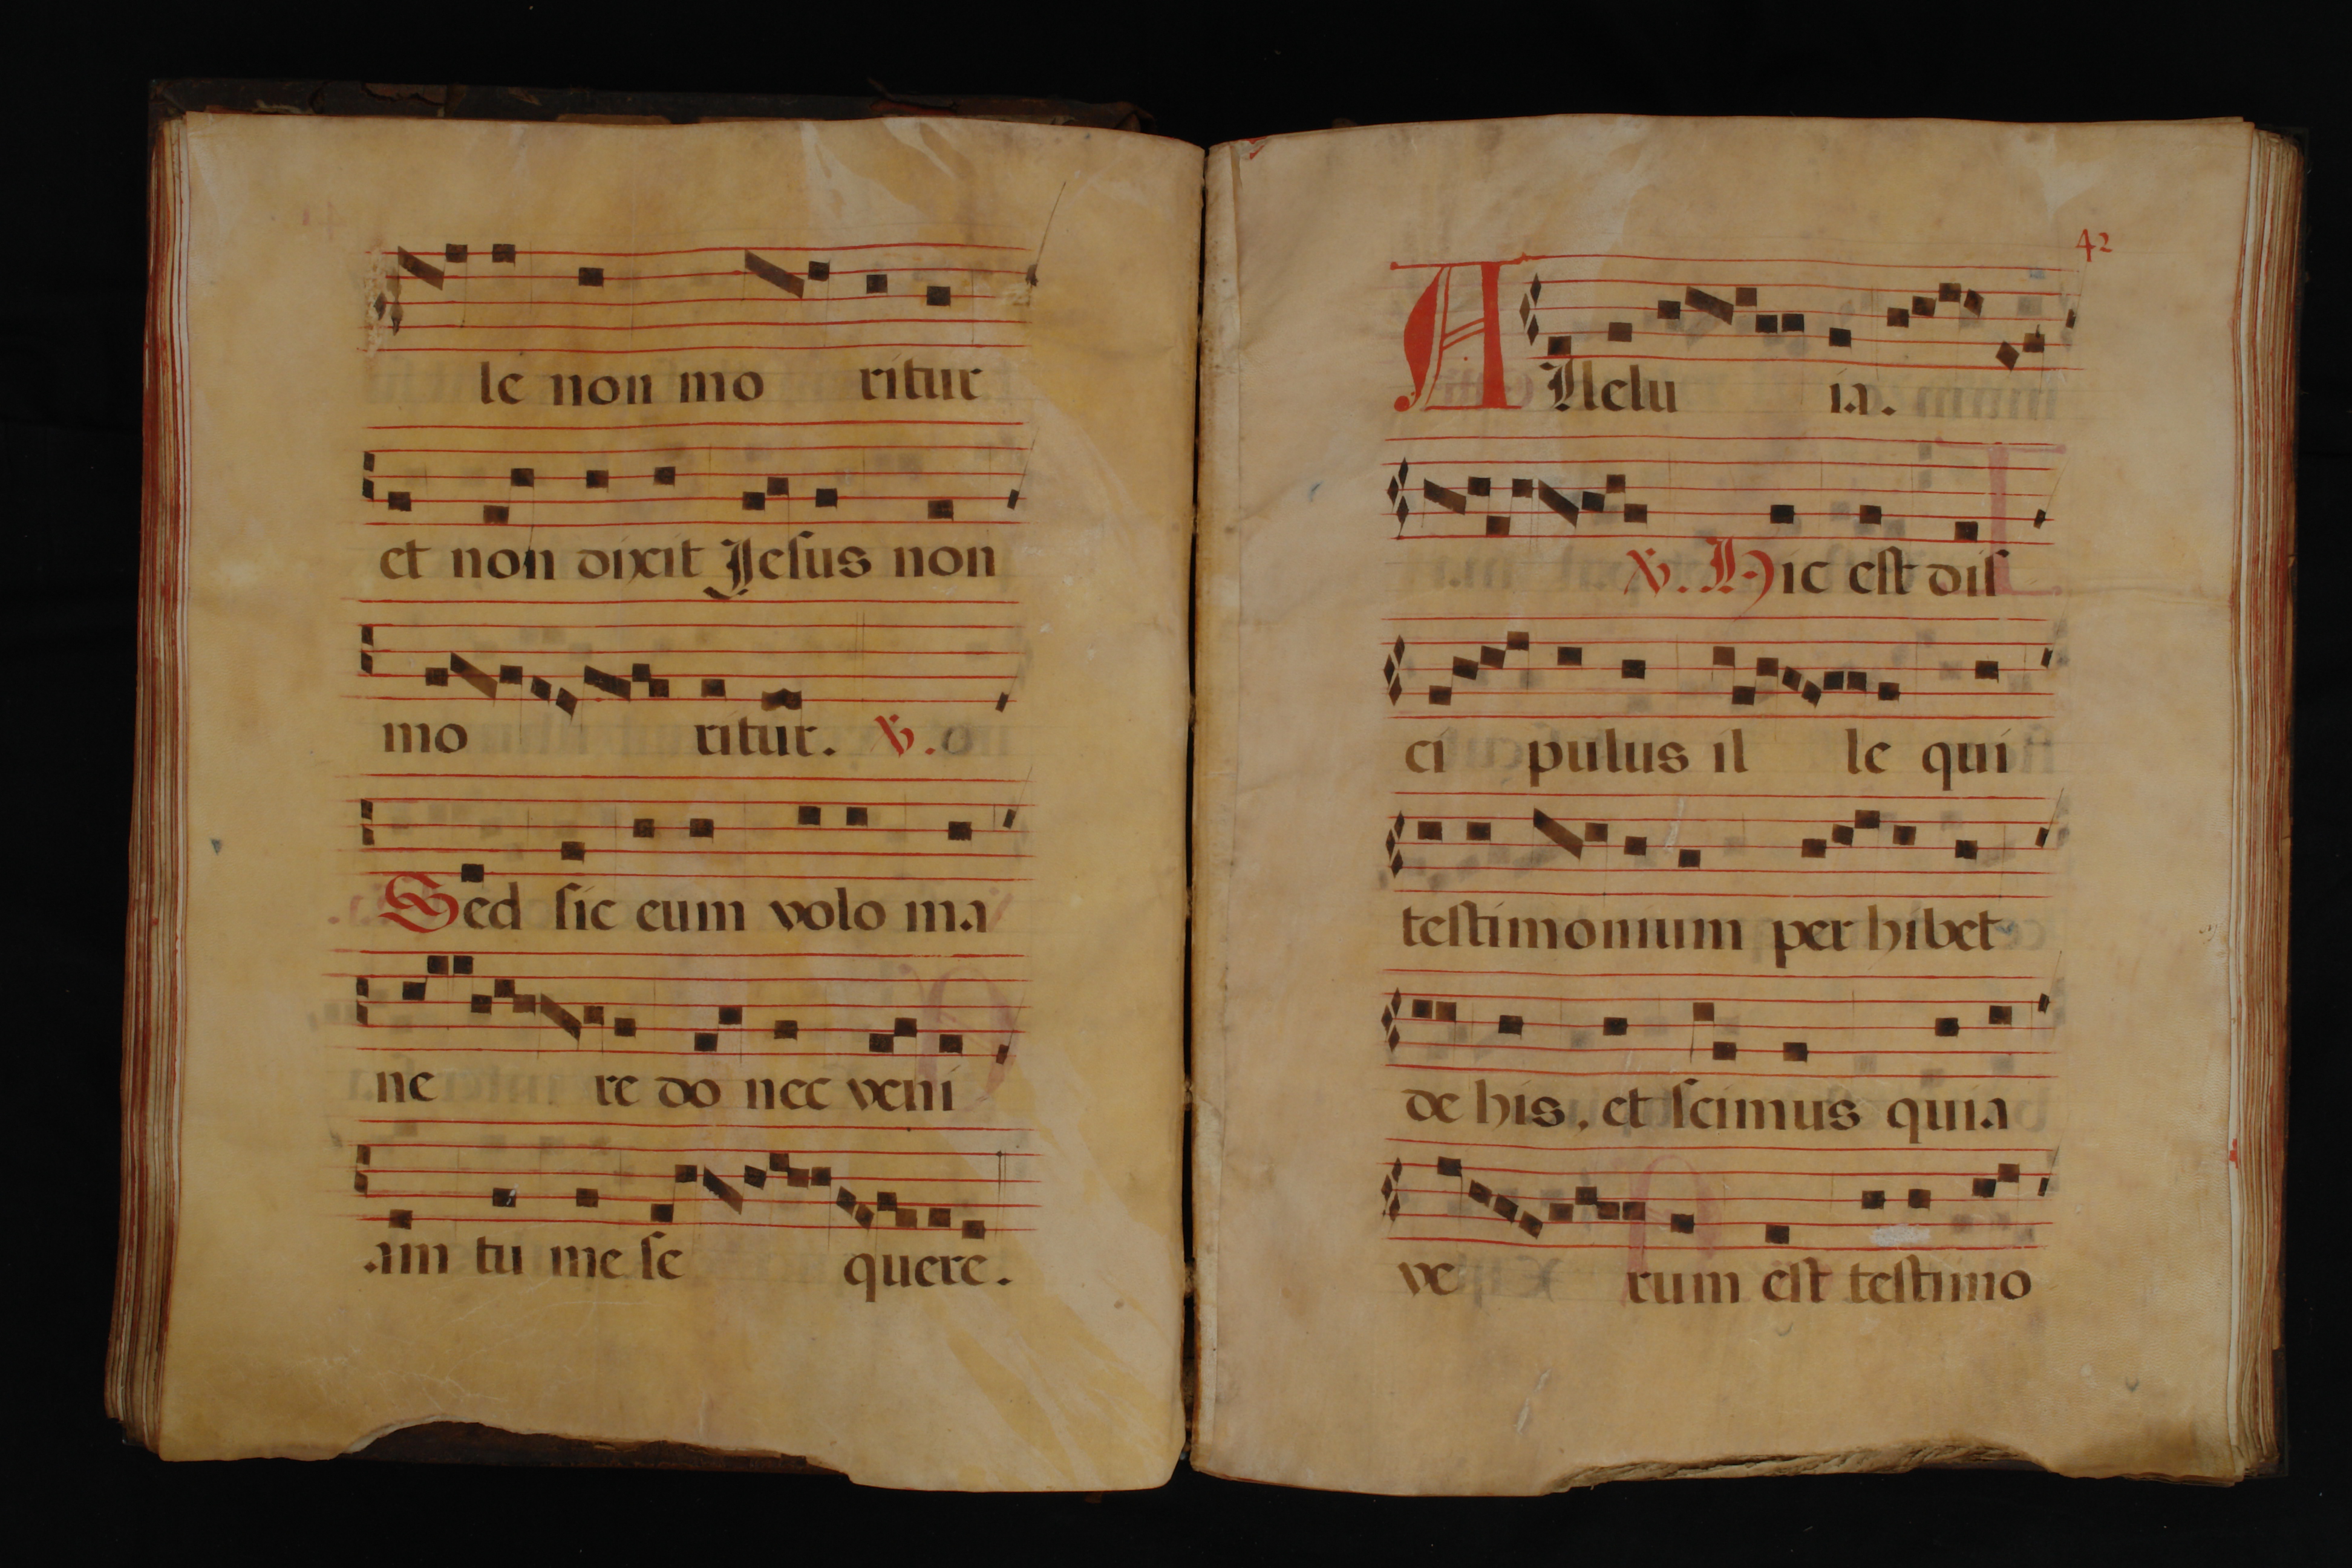 le non mo ritur
et non dixit Jesus non
mo ritur. ℣.
Sed sic eum volo ma
ne re do nec veni
am tu me se quere.
42
Allelu ia.
℣. Hic est dis
ci pulus il le qui
testimonium per hibet
de his, et scimus quia
ve rum est testimo